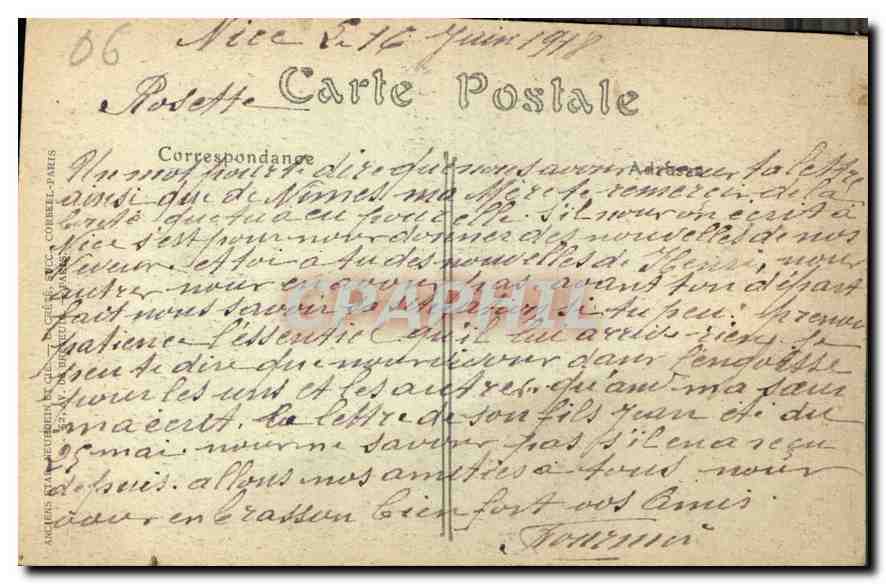 06
Nice Le 16 Juin 1918
Rosette
Carte Postale
Correspondance
Adresse
Un mot pour te dire que nous avons ta lettre
ainsi que de Nimes ma Mère te remercie de la
bonté que tu a eu pour elle. s'il nour on ecrit à
Nice s'est pour nour donner des nouvelles de nos
Neveur. et toi a tu des nouvelles de Henri, nour
autrer nour en avons pas avant ton départ
fait nous savoir si tu peu. prenon
patience l'essentiel qu'il lui arrive rien je
peu te dire que nour vivour dans l'engoisse
pour les uns et les autrer. quand ma sœur
m'a ecrit. la lettre de son fils Jean eté du
25 mai. nour ne savour pas s'il en a reçu
depuis. allons nos amitiés à tous nour
vour en brasson bien fort vos Amis
Fournier
ANCIENS ETAB. NEURDEIN ET CIE. CRÉTÉ, SUCC. CORBEIL-PARIS
CPAPHIL